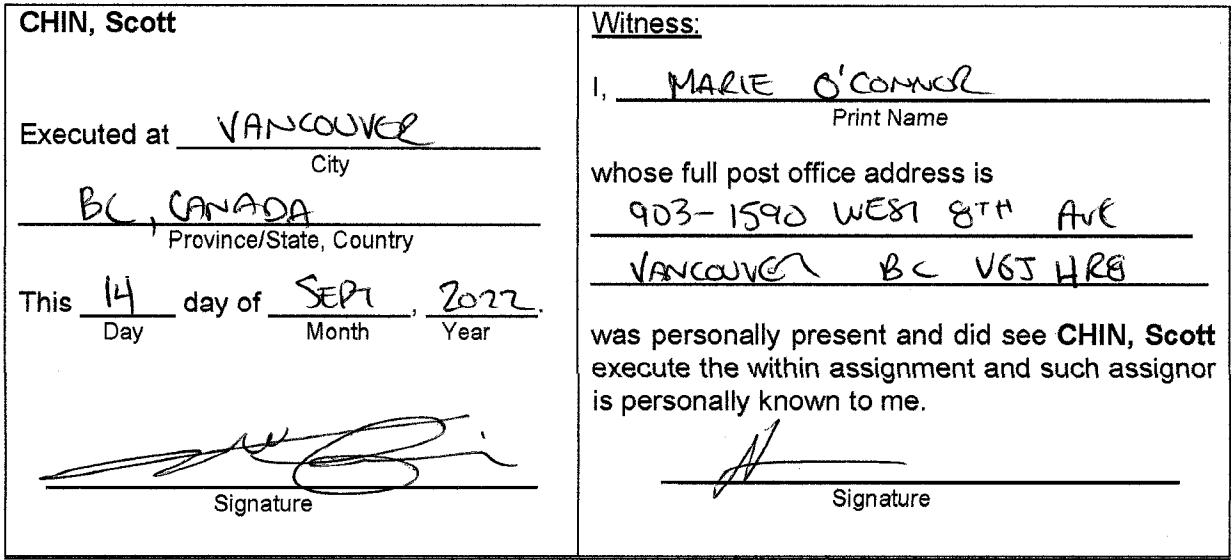 CHIN, Scott
Executed at VANCOUVER
City
BC, CANADA
Province/State, Country
This 14 day of SEPT, 2022.
Day Month Year
Signature
Witness:
I, MARIE O'CONNOR
Print Name
whose full post office address is
903-1590 WEST 8TH AVE
VANCOUVER BC V6J 4R8
was personally present and did see CHIN, Scott
execute the within assignment and such assignor
is personally known to me.
Signature